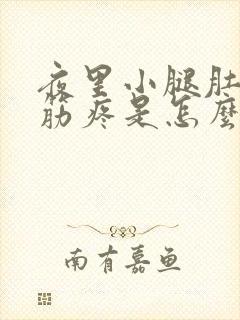 夜里小腿肚
筋疼是怎麽
南有嘉鱼